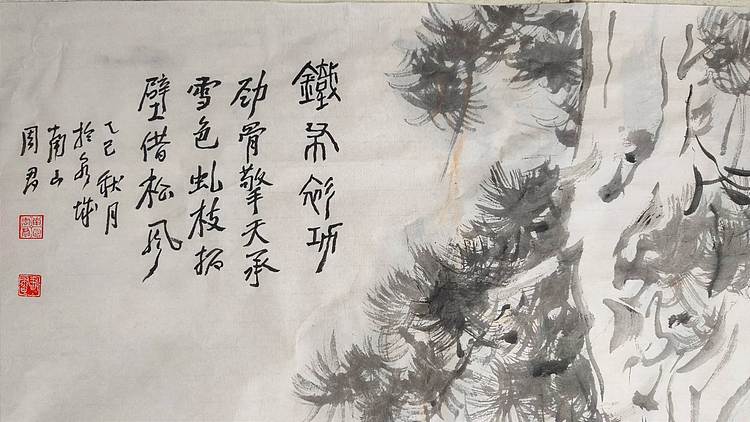 鐵功
劲骨擎天承
雪色虬枝拓
壁借松風
乙巳秋月
於泉城
南山
周君